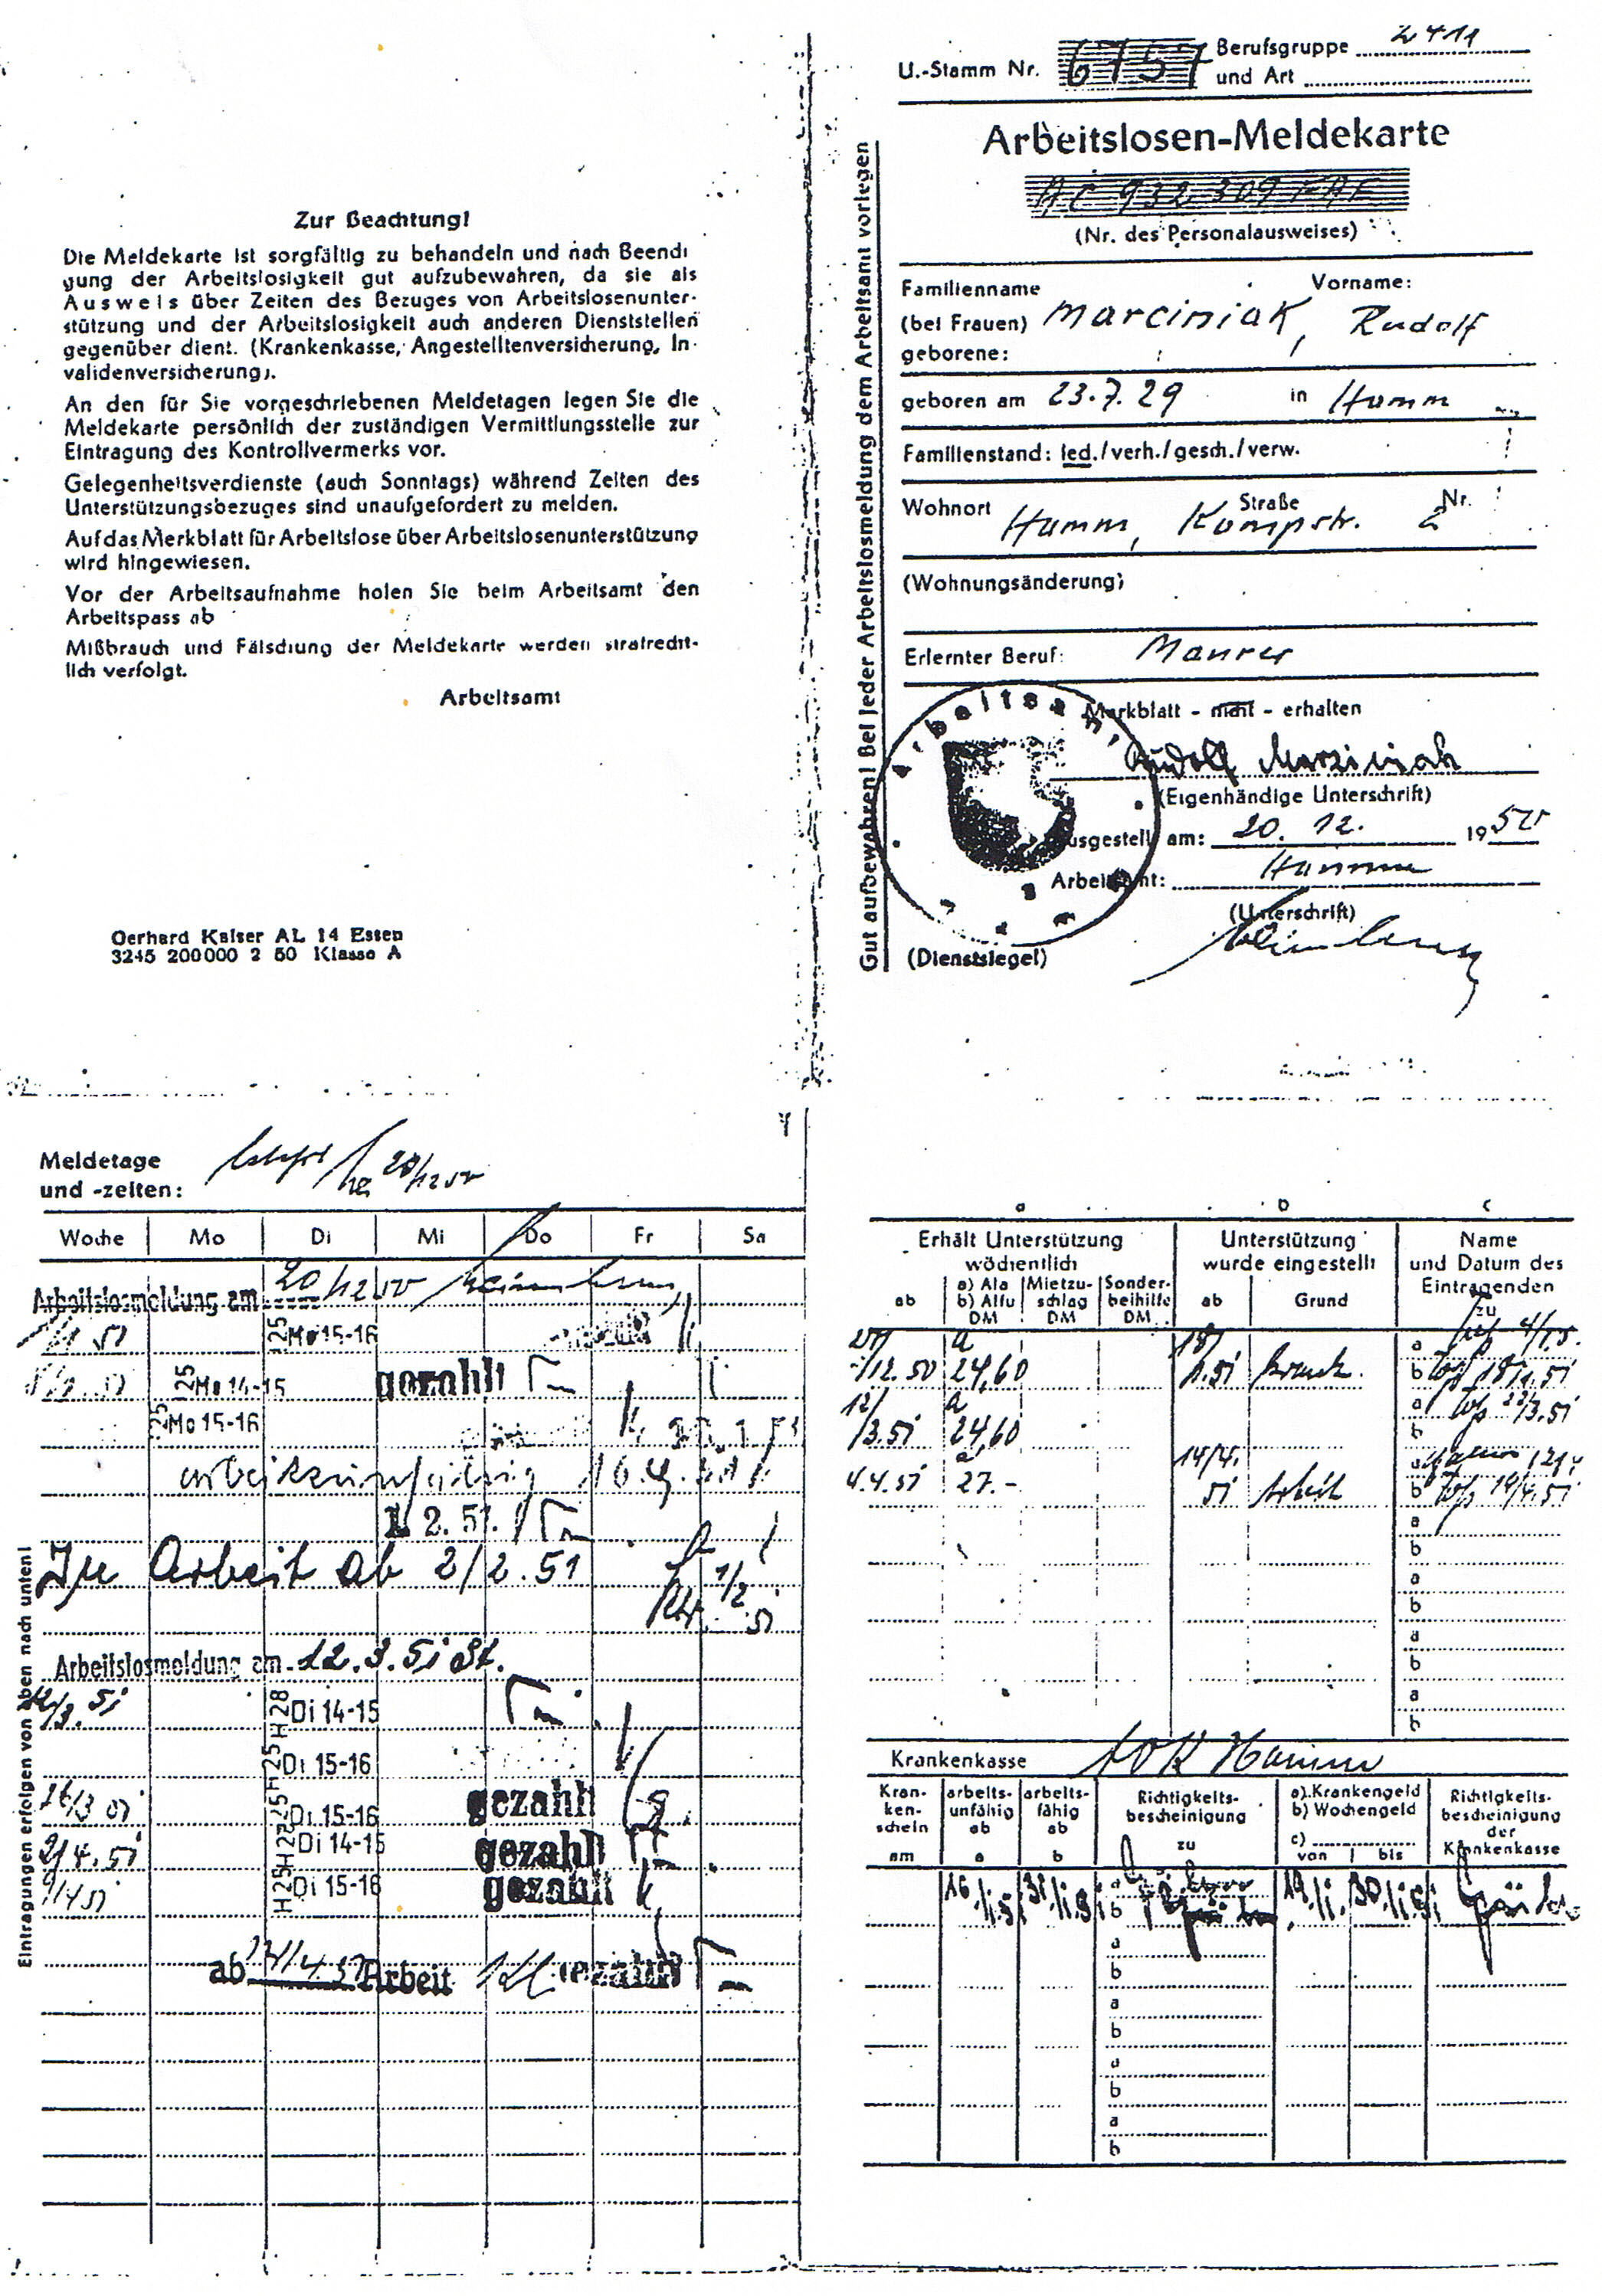 Zur Beachtung!
Die Meldekarte ist sorgfältig zu behandeln und nach Beendi
gung der Arbeitslosigkeit gut aufzubewahren, da sie als
Ausweis über Zeiten des Bezuges von Arbeitslosenunter-
stützung und der Arbeitslosigkeit auch anderen Dienststellen
gegenüber dient. (Krankenkasse, Angestelltenversicherung, In-
validenversicherung).
An den für Sie vorgeschriebenen Meldetagen legen Sie die
Meldekarte persönlich der zuständigen Vermittlungsstelle zur
Eintragung des Kontrollvermerks vor.
Gelegenheitsverdienste (auch Sonntags) während Zeiten des
Unterstützungsbezuges sind unaufgefordert zu melden.
Auf das Merkblatt für Arbeitslose über Arbeitslosenunterstützung
wird hingewiesen.
Vor der Arbeitsaufnahme holen Sie beim Arbeitsamt den
Arbeitspass ab
Mißbrauch und Fälschung der Meldekarte werden strafrecht-
lich verfolgt.
Arbeitsamt
Gerhard Kaiser AL 14 Essen
3245 200000 2 50 Klasse A
Gut aufbewahren! Bei jeder Arbeitslosmeldung dem Arbeitsamt vorlegen
U.-Stamm Nr. 6757 Berufsgruppe 2411
und Art
Arbeitslosen-Meldekarte
AC 932 309
(Nr. des Personalausweises)
Familienname Vorname:
(bei Frauen) Marciniak, Rudolf
geborene:
geboren am 23.7.29 in Hamm
Familienstand: led./verh./gesch./verw.
Wohnort Straße Nr.
Hamm, Kampstr. 2
(Wohnungsänderung)
Erlernter Beruf: Maurer
Merkblatt - nicht - erhalten
Rudolf Marziniak
(Eigenhändige Unterschrift)
Ausgestellt am: 20. 12. 1950
Arbeitsamt: Hamm
(Unterschrift)
(Dienstsiegel)
Arbeitsamt
Meldetage
und -zeiten: 20/12 50
Woche Mo Di Mi Do Fr Sa
Arbeitslosmeldung am 20/12 50
Mo 15-16
Mo 14-15 gezahlt
Mo 15-16
1. 2. 51.
In Arbeit ab 2/2.51
1/2 51
Arbeitslosmeldung am 12.3.51 St.
12/3. 51 H 28 Di 14-15
H 25 Di 15-16
26/3 51 Di 15-16 gezahlt
2/4.51 Di 14-15 gezahlt
9/4 51 H 25 Di 15-16 gezahlt
ab 14/4 51 Arbeit gezahlt
Eintragungen erfolgen von oben nach unten!
a b c
Erhält Unterstützung Unterstützung Name
wöchentlich wurde eingestellt und Datum des
a) Ala Mietzu- Sonder- Eintragenden
ab b) Alfu schlag beihilfe ab Grund zu
DM DM DM
a 18/ a
/12.50 24,60 1.51 krank. b 18/1.51
12/ a a 22/3.51
/3.51 24,60 b
a 14/4. a
4.4.51 27.- 51 Arbeit b 14/4.51
a
b
a
b
a
b
a
b
Krankenkasse AOK Hamm
Kran- arbeits- arbeits- Richtigkeits- a) Krankengeld Richtigkeits-
ken- unfähig fähig bescheinigung b) Wochengeld bescheinigung
schein ab ab zu c) der
am a b von bis Krankenkasse
a
b
a
b
a
b
a
b
a
b